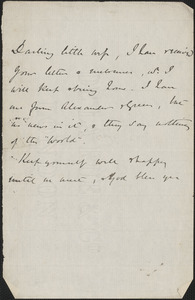 Darling little wife, I have receiv
Your letter & enclosures, & I
will keep strong here. I have
one from Alexander & Green, but
no news in it, & they say nothing
of the "World".
Keep yourself well & happy
until we meet, & God bless you